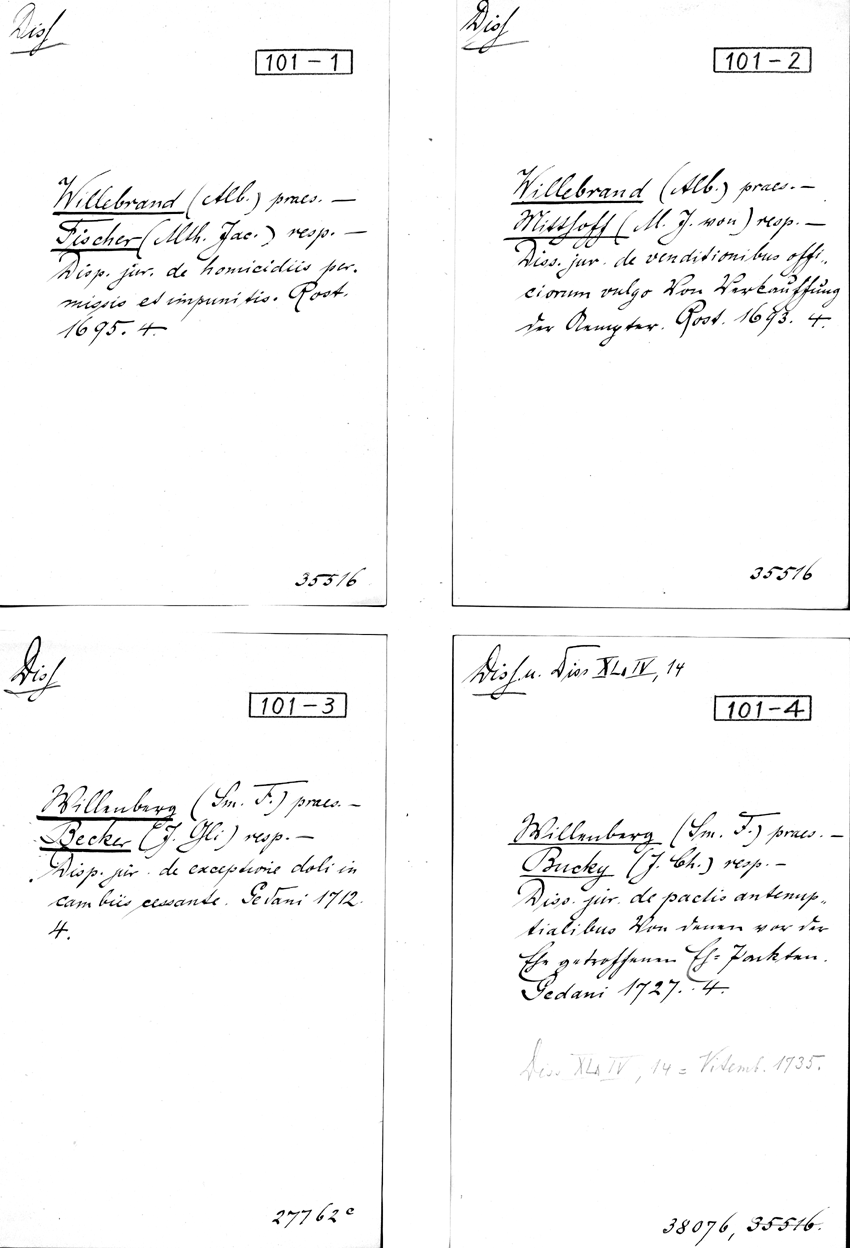 Diss
101-1
Willebrand (Alb.) praes. —
Fischer (Mth. Jac.) resp. —
Disp. jur. de homicidiis per-
missis et impunitis. Rost.
1695. 4.
35516
Diss
101-2
Willebrand (Alb.) praes. —
Mitthoff (M. J. von) resp. —
Diss. jur. de venditionibus offi-
ciorum vulgo Von Verkauffung
der Aempter. Rost. 1693. 4.
35516
Diss
101-3
Willenberg (Sm. F.) praes. —
Becker (J. Gli.) resp. —
Disp. jur. de exceptione doli in
cambiis cessante. Gedani 1712.
4.
27762c
Diss. u. Diss XLa IV, 14
101-4
Willenberg (Sm. F.) praes. —
Bucky (J. Ch.) resp. —
Diss. jur. de pactis antenup-
tialibus Von denen vor der
Ehe getroffenen Eh= Packten.
Gedani 1727. 4.
Diss XLa IV, 14 = Vitemb. 1735.
38076, 35516.